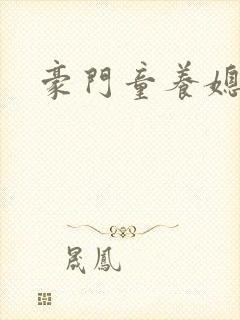 豪門童養媳
晟鳳